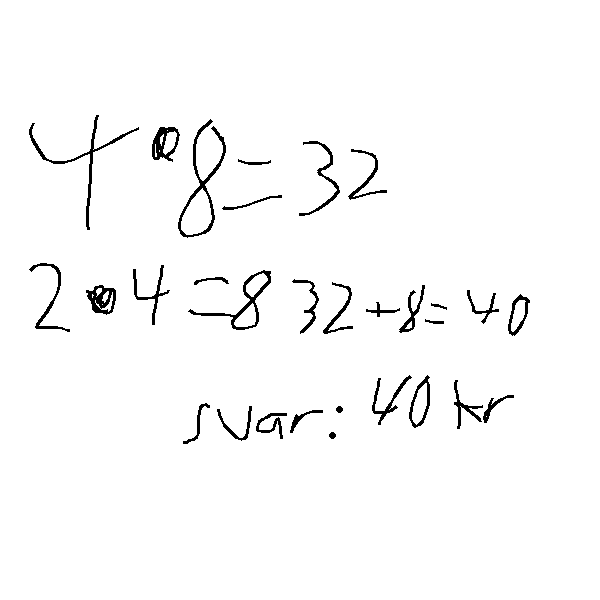 4•8=32
2•4=8 32+8=40
svar: 40 kr